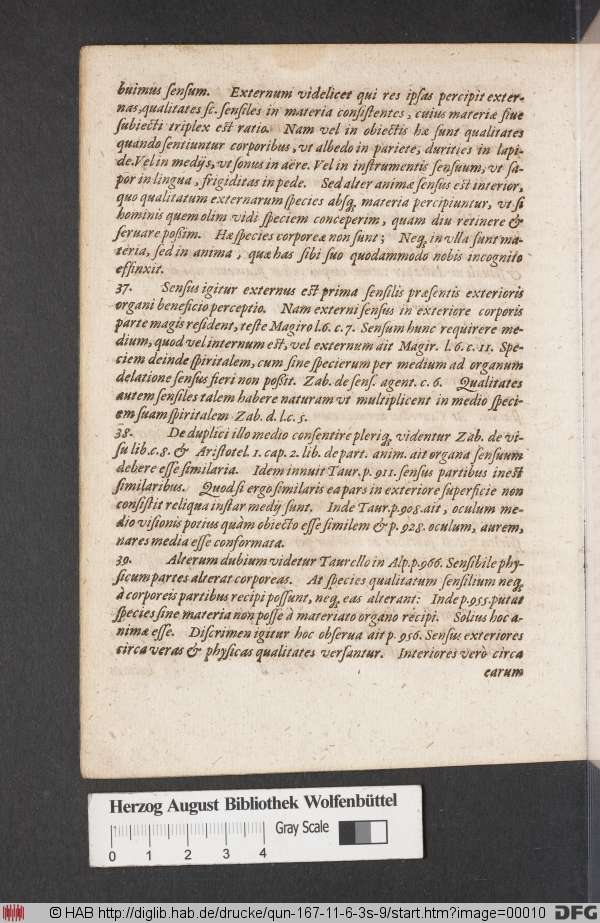 buimus sensum. Externum videlicet qui res ipsas percipit exter-
nas, qualitates sc. sensiles in materia consistentes, cuius materiæ siue
subiecti triplex est ratio. Nam vel in obiectis hæ sunt qualitates
quando sentiuntur corporibus, vt albedo in pariete, durities in lapi-
de. Vel in medijs, vt sonus in aere. Vel in instrumentis sensuum, vt sa-
por in lingua, frigiditas in pede. Sed alter animæ sensus est interior,
quo qualitatum externarum species absq; materia percipiuntur, vt si
hominis quem olim vidi speciem conceperim, quam diu retinere &
seruare possim. Hæ species corporeæ non sunt; Neq; in vlla sunt ma-
teria, sed in anima, quæ has sibi suo quodammodo nobis incognito
effinxit.
37. Sensus igitur externus est prima sensilis præsentis exterioris
organi beneficio perceptio. Nam externi sensus in exteriore corporis
parte magis resident, teste Magiro l. 6. c. 7. Sensum hunc requirere me-
dium, quod vel internum est, vel externum ait Magir. l. 6. c. 11. Spe-
ciem deinde spiritalem, cum sine specierum per medium ad organum
delatione sensus fieri non possit. Zab. de sens. agent. c. 6. Qualitates
autem sensiles talem habere naturam vt multiplicent in medio speci-
em suam spiritalem Zab. d. l. c. 5.
38. De duplici illo medio consentire pleriq; videntur Zab. de vi-
su lib. c. 8. & Aristotel. 1. cap. 2. lib. de part. anim. ait organa sensuum
debere esse similaria. Idem innuit Taur. p. 911. sensus partibus inest
similaribus. Quod si ergo similaris ea pars in exteriore superficie non
consistit reliqua instar medij sunt. Inde Taur. p. 908. ait, oculum me-
dio visionis potius quàm obiecto esse similem & p. 928. oculum, aurem,
nares media esse conformata.
39. Alterum dubium videtur Taurello in Alp. p. 966. Sensibile phy-
sicum partes alterat corporeas. At species qualitatum sensilium neq;
à corporeis partibus recipi possunt, neq; eas alterant: Inde p. 955. putat
species sine materia non posse à materiato organo recipi. Solius hoc a-
nimæ esse. Discrimen igitur hoc obserua ait p. 956. Sensus exteriores
circa veras & physicas qualitates versantur. Interiores verò circa
earum
Herzog August Bibliothek Wolfenbüttel
Gray Scale
0 1 2 3 4
© HAB http://diglib.hab.de/drucke/qun-167-11-6-3s-9/start.htm?image=00010 DFG